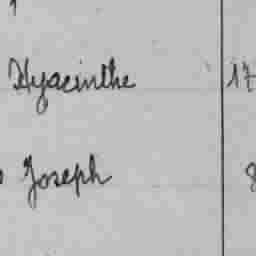 Hyacinthe 17
Joseph 8